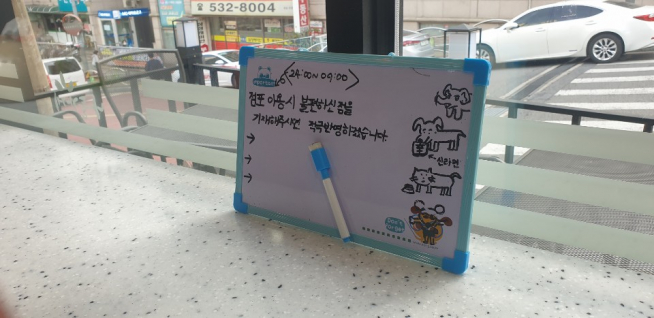 532-8004
<24:00~09:00>
점포 이용시 불편하신점을
기재해주시면 적극반영하겠습니다.
→
→ 신라면
→